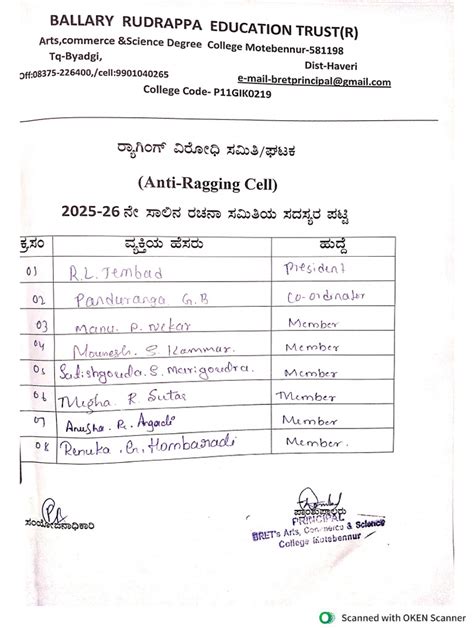 BALLARY RUDRAPPA EDUCATION TRUST(R)
Arts,commerce &Science Degree College Motebennur-581198
Tq-Byadgi,
Dist-Haveri
Off:08375-226400,/cell:9901040265
e-mail-bretprincipal@gmail.com
College Code- P11GIK0219
ರ‍್ಯಾಗಿಂಗ್ ವಿರೋಧಿ ಸಮಿತಿ/ಘಟಕ
(Anti-Ragging Cell)
2025-26 ನೇ ಸಾಲಿನ ರಚನಾ ಸಮಿತಿಯ ಸದಸ್ಯರ ಪಟ್ಟಿ
ಕ್ರ.ಸಂ ವ್ಯಕ್ತಿಯ ಹೆಸರು ಹುದ್ದೆ
01 R.L.Tembad President
02 Panduranga G.B Co-ordinator
03 Manu. P. Nekar Member
04 Mounesh. S. Kammar. Member
05 Satishgouda. S. Marigoudra. Member
06 Megha R Sutar Member
07 Anusha. R. Argadi Member
08 Renuka. G. Hombaradi Member.
ಸಂಯೋಜನಾಧಿಕಾರಿ
ಪ್ರಾಂಶುಪಾಲರು
PRINCIPAL
BRET's Arts, Commerce & Science
College Motebennur
Scanned with OKEN Scanner